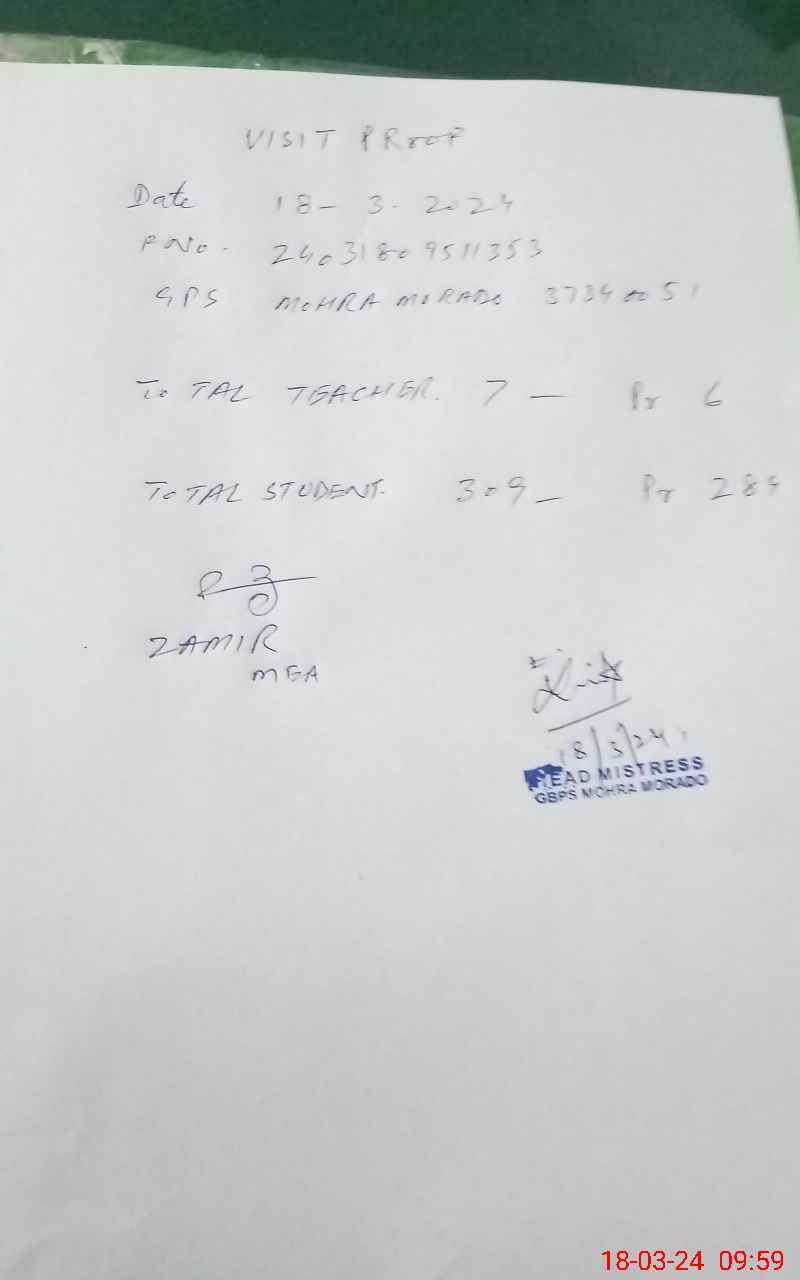 VISIT PROOF
Date 18- 3. 2024
P No. 24031809511353
GPS MOHRA MORADO 37340051
TOTAL TEACHER. 7 — Pr 6
TOTAL STUDENT. 309 — Pr 284
ZAMIR
MEA
18/3/24
HEAD MISTRESS
GBPS MOHRA MORADO
18-03-24 09:59